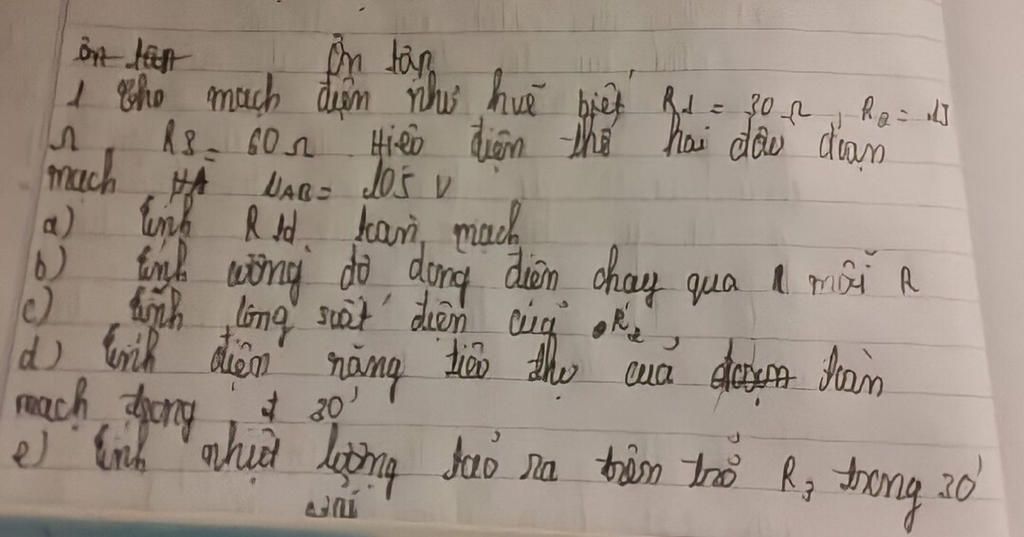 Ôn tân
1 Cho mach điện như huẽ biết R1 = 30 Ω, R2 = 15
Ω R3 = 60 Ω Hiêo điện thê hai đâu đoan
mach UAB = 105 V
a) tinh R tđ toan mach
b) tinh cường đô dong điên chay qua môi R
c) tinh công suât điên củă R2,
d) tinh điện năng tiêo thụ của toàn
mach trong t 30'
e) tinh nhiệt lượng tảo ra trên trở R3 trong 30'